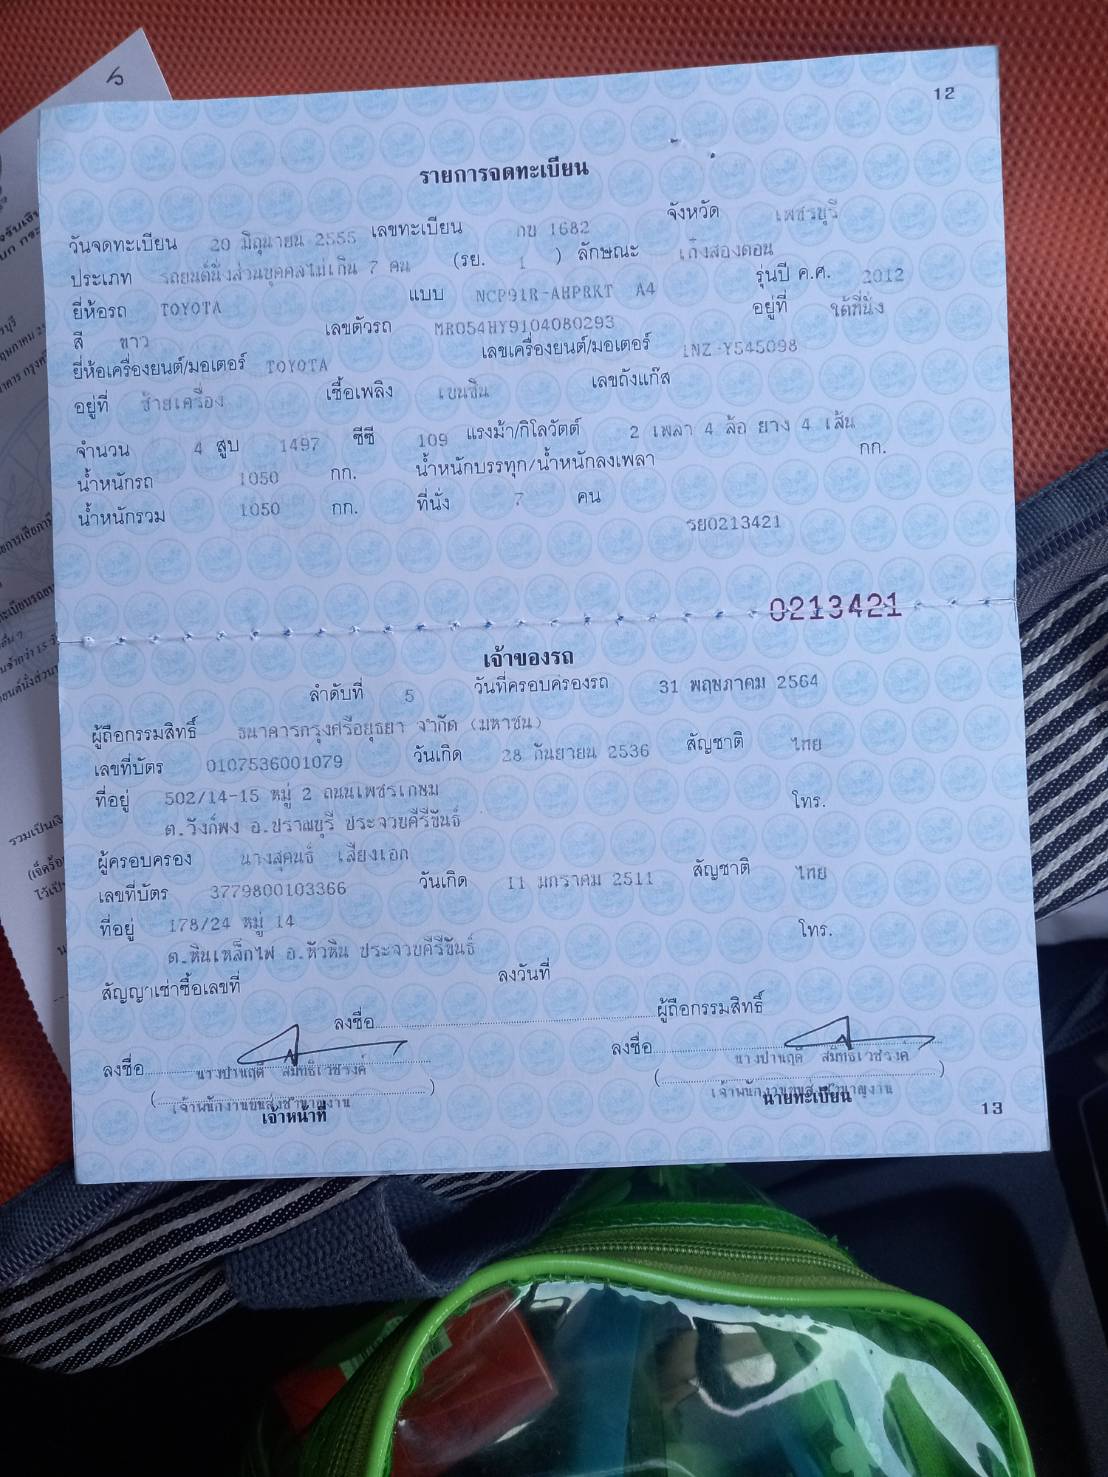 12
รายการจดทะเบียน
วันจดทะเบียน 20 มิถุนายน 2555 เลขทะเบียน กบ 1682 จังหวัด เพชรบุรี
ประเภท รถยนต์นั่งส่วนบุคคลไม่เกิน 7 คน (รย. 1 ) ลักษณะ เก๋งสองตอน
ยี่ห้อรถ TOYOTA แบบ NCP91R-AHPRKT A4 รุ่นปี ค.ศ. 2012
สี ขาว เลขตัวรถ MR054HY9104080293 อยู่ที่ ใต้ที่นั่ง
ยี่ห้อเครื่องยนต์/มอเตอร์ TOYOTA เลขเครื่องยนต์/มอเตอร์ 1NZ-Y545098
อยู่ที่ ซ้ายเครื่อง เชื้อเพลิง เบนซิน เลขถังแก๊ส
จำนวน 4 สูบ 1497 ซีซี 109 แรงม้า/กิโลวัตต์ 2 เพลา 4 ล้อ ยาง 4 เส้น
น้ำหนักรถ 1050 กก. น้ำหนักบรรทุก/น้ำหนักลงเพลา กก.
น้ำหนักรวม 1050 กก. ที่นั่ง 7 คน
รย0213421
0213421
เจ้าของรถ
ลำดับที่ 5 วันที่ครอบครองรถ 31 พฤษภาคม 2564
ผู้ถือกรรมสิทธิ์ ธนาคารกรุงศรีอยุธยา จำกัด (มหาชน)
เลขที่บัตร 0107536001079 วันเกิด 28 กันยายน 2536 สัญชาติ ไทย
ที่อยู่ 502/14-15 หมู่ 2 ถนนเพชรเกษม โทร.
ต.วังก์พง อ.ปราณบุรี ประจวบคีรีขันธ์
ผู้ครอบครอง นางสุคนธ์ เสียงเอก
เลขที่บัตร 3779800103366 วันเกิด 11 มกราคม 2511 สัญชาติ ไทย
ที่อยู่ 178/24 หมู่ 14 โทร.
ต.หินเหล็กไฟ อ.หัวหิน ประจวบคีรีขันธ์
สัญญาเช่าซื้อเลขที่ ลงวันที่
ลงชื่อ ผู้ถือกรรมสิทธิ์
ลงชื่อ นางปานฤดี สมิทธิเวชรงค์ ลงชื่อ นางปานฤดี สมิทธิเวชรงค์
(เจ้าพนักงานขนส่งชำนาญงาน) (เจ้าพนักงานขนส่งชำนาญงาน)
เจ้าหน้าที่ นายทะเบียน
13